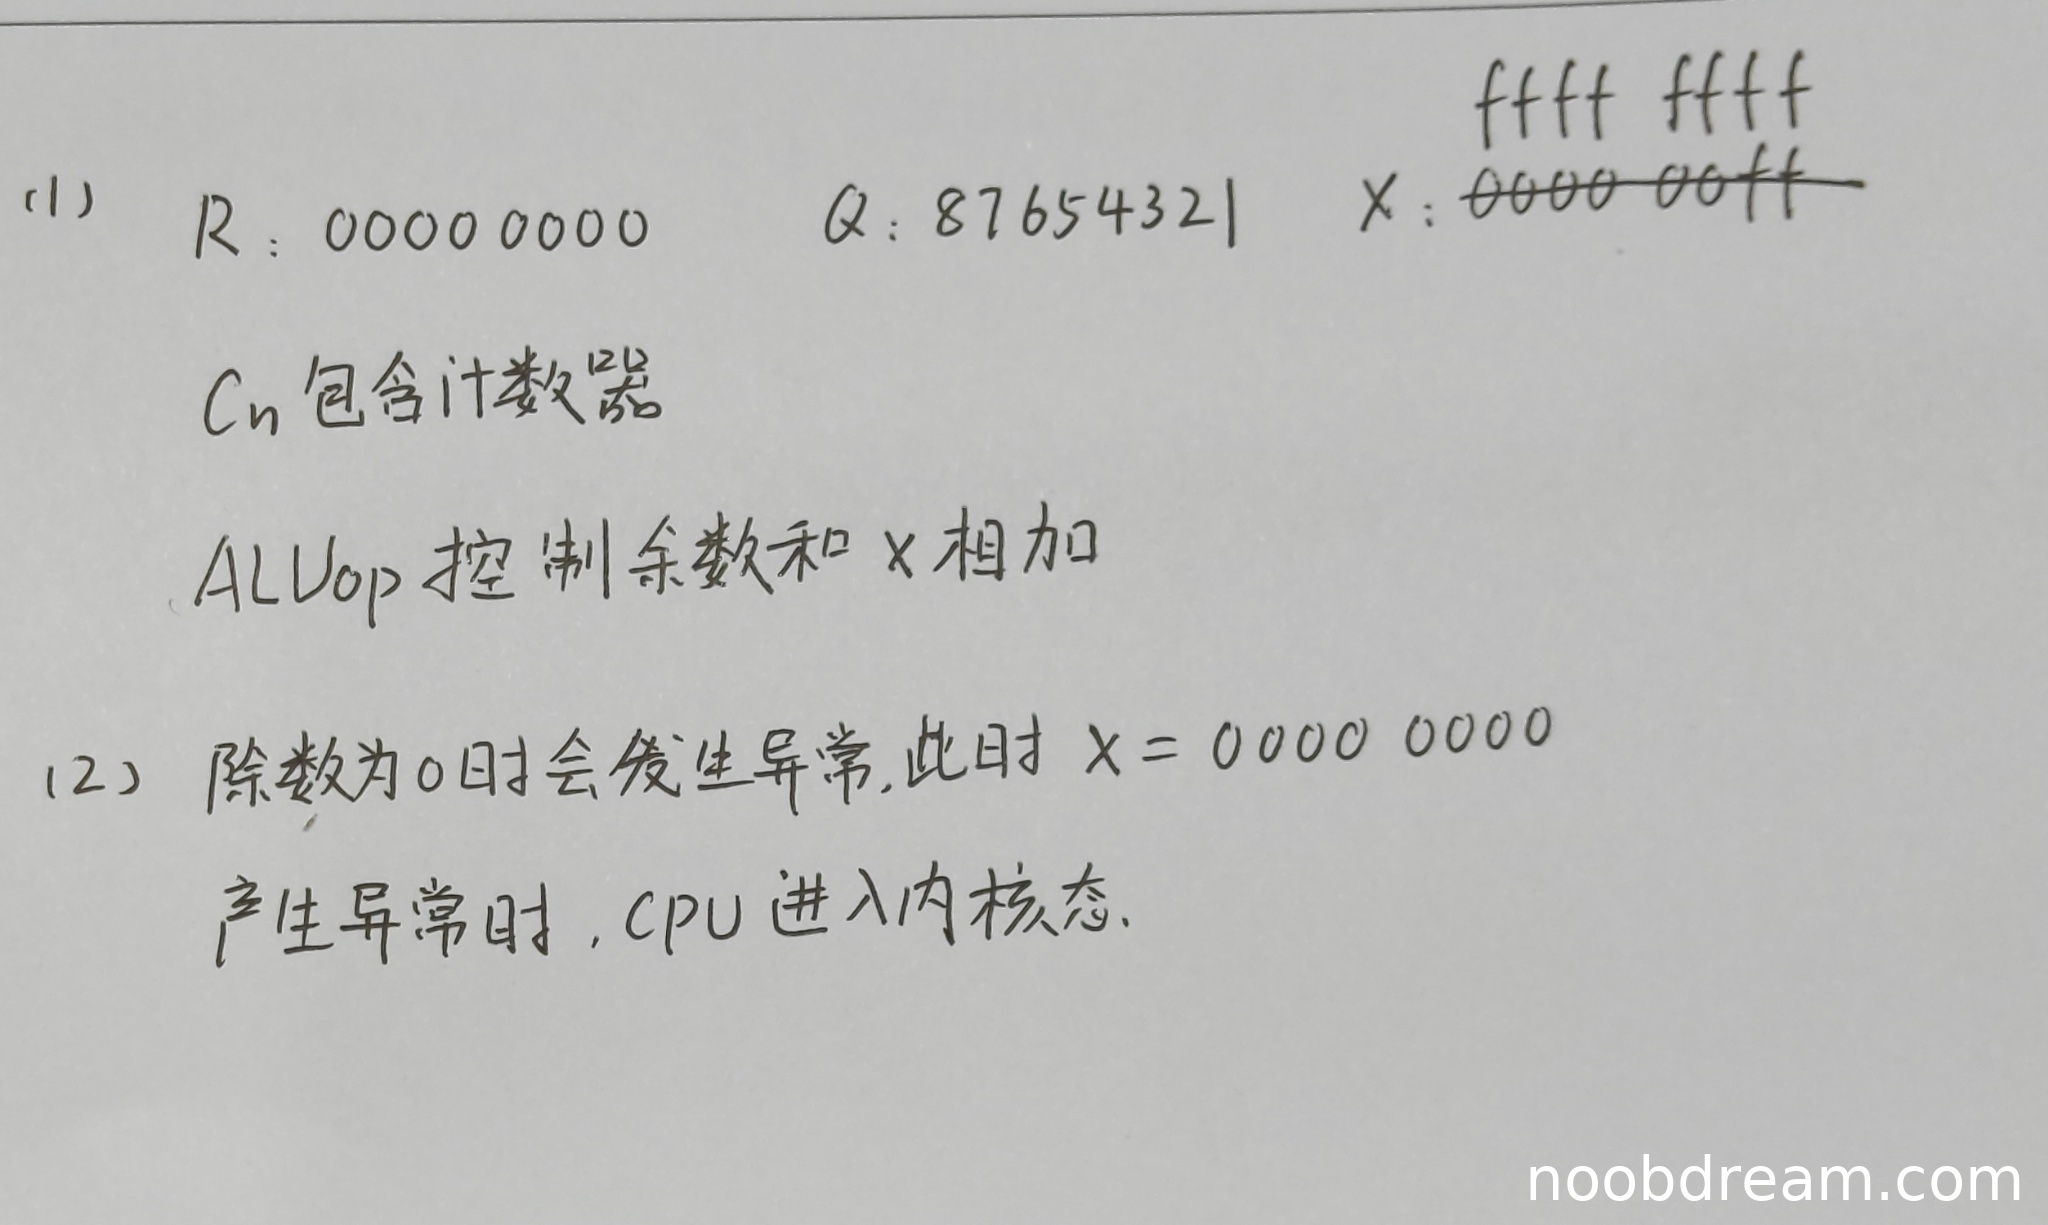 ffff ffff
(1) R: 0000 0000 Q: 87654321 X: 0000 00ff
Cn包含计数器
ALUop控制余数和x相加
(2) 除数为0时会发生异常,此时 x = 0000 0000
产生异常时,CPU进入内核态.
noobdream.com